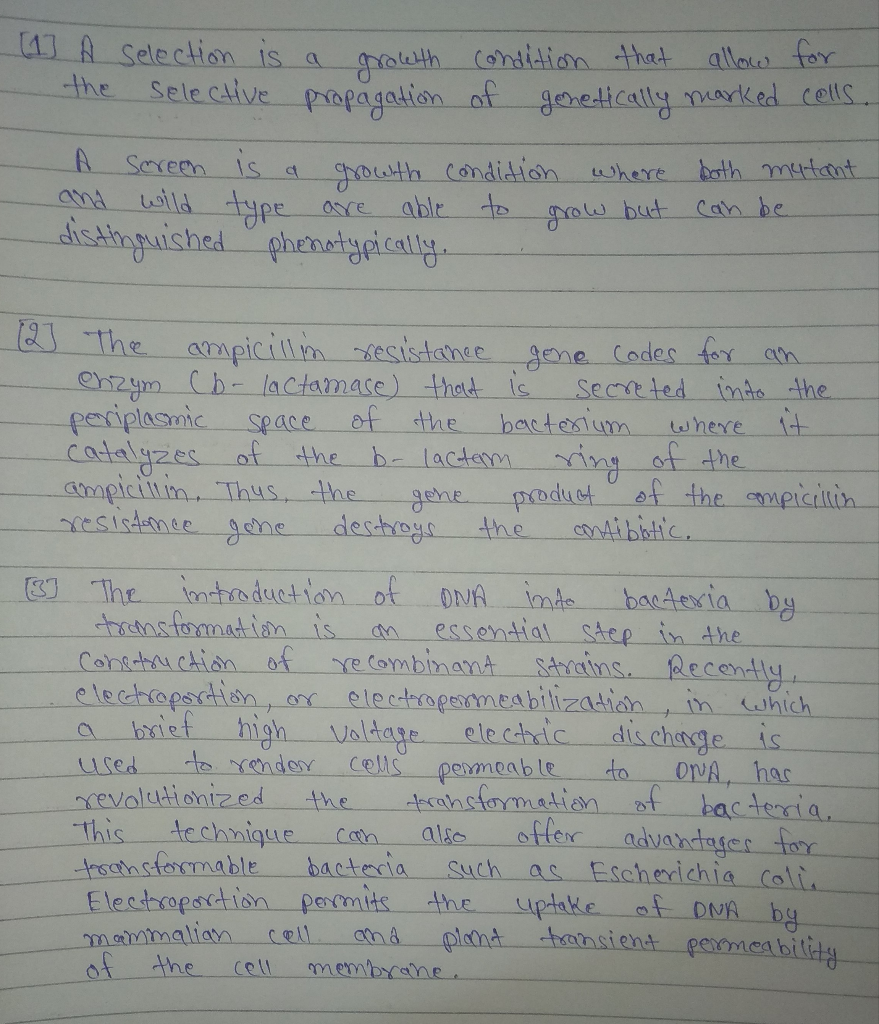 [1] A selection is a growth condition that allow for
the selective propagation of genetically marked cells.
A screen is a growth condition where both mutant
and wild type are able to grow but can be
distinguished phenotypically.
[2] The ampicillin resistance gene codes for an
enzym (b-lactamase) that is secreted into the
periplasmic space of the bacterium where it
catalyzes of the b-lactam ring of the
ampicillin. Thus, the gene product of the ampicillin
resistance gene destroys the antibiotic.
[3] The introduction of DNA into bacteria by
transformation is an essential step in the
construction of recombinant strains. Recently,
electroportion, or electropermeabilization, in which
a brief high voltage electric discharge is
used to render cells permeable to DNA, has
revolutionized the transformation of bacteria.
This technique can also offer advantages for
transformable bacteria such as Escherichia coli.
Electroportion permits the uptake of DNA by
mammalian cell and plant transient permeability
of the cell membrane.